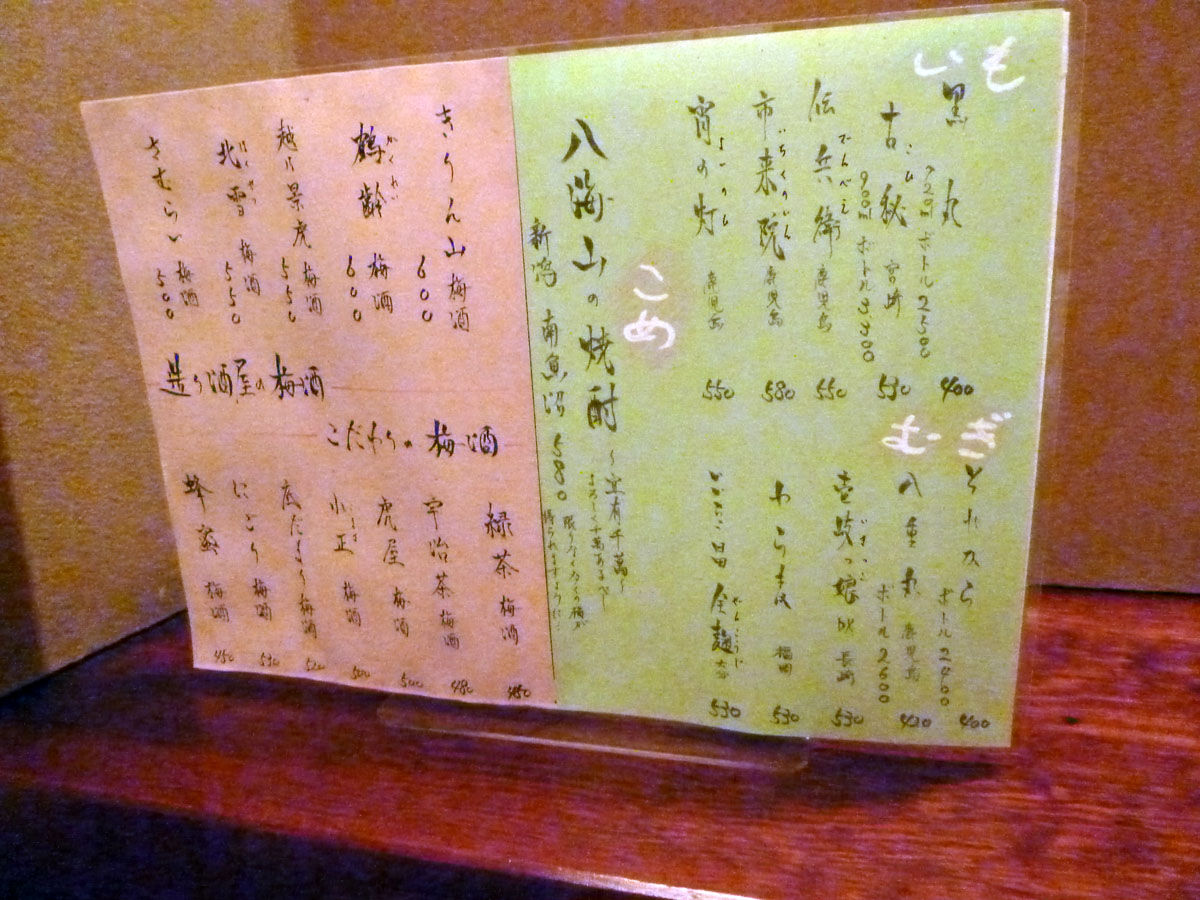 いも
黒丸
720ml ボトル 2500
400
古秋
こしゅう
宮崎
900ml ボトル 3300
530
伝兵衛
でんべえ
鹿児島
550
市来院
いちくのいん
鹿児島
580
宵の灯
鹿児島
550
むぎ
それから
ボトル 2400
400
八重丸
鹿児島
ボトル 2600
420
壱岐っ娘
長崎
530
わらべ
福岡
530
全麹
ぜんこうじ
大分
530
こめ
八海山の焼酎
〜宜有千萬〜
新潟 南魚沼 580
きりん山 梅酒 600
鶴齢 梅酒 600
かくれい
越乃景虎 梅酒 550
北雪 梅酒 550
ほくせつ
さむらい 梅酒 500
造り酒屋の梅酒
こだわりの梅酒
緑茶 梅酒 450
宇治茶 梅酒 480
虎屋 梅酒 500
小正 梅酒 500
底だまり 梅酒 520
にごり 梅酒 530
蜂蜜 梅酒 450